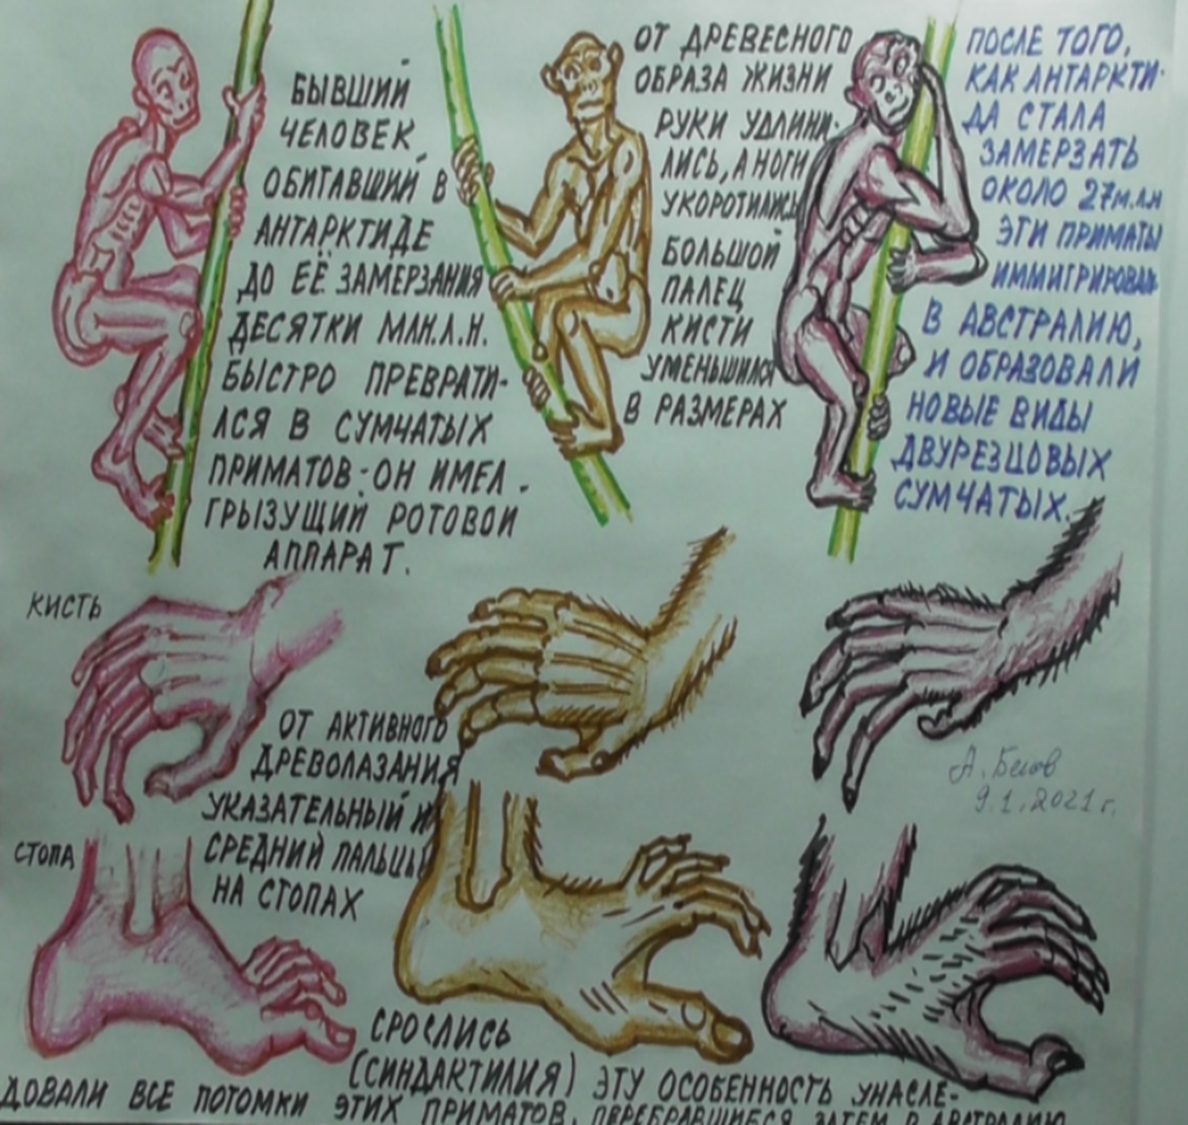 БЫВШИЙ
ЧЕЛОВЕК
ОБИТАВШИЙ В
АНТАРКТИДЕ
ДО ЕЁ ЗАМЕРЗАНИЯ
ДЕСЯТКИ МЛН.Л.Н.
БЫСТРО ПРЕВРАТИ-
ЛСЯ В СУМЧАТЫХ
ПРИМАТОВ: ОН ИМЕЛ
ГРЫЗУЩИЙ РОТОВОЙ
АППАРАТ.
ОТ ДРЕВЕСНОГО
ОБРАЗА ЖИЗНИ
РУКИ УДЛИНИ-
ЛИСЬ, А НОГИ
УКОРОТИЛИСЬ
БОЛЬШОЙ
ПАЛЕЦ
КИСТИ
УМЕНЬШИЛСЯ
В РАЗМЕРАХ
ПОСЛЕ ТОГО,
КАК АНТАРКТИ-
ДА СТАЛА
ЗАМЕРЗАТЬ
ОКОЛО 27 М.Л.Н
ЭТИ ПРИМАТЫ
ИММИГРИРОВАЛИ
В АВСТРАЛИЮ,
И ОБРАЗОВАЛИ
НОВЫЕ ВИДЫ
ДВУРЕЗЦОВЫХ
СУМЧАТЫХ.
КИСТЬ
ОТ АКТИВНОГО
ДРЕВОЛАЗАНИЯ
УКАЗАТЕЛЬНЫЙ И
СРЕДНИЙ ПАЛЬЦЫ
НА СТОПАХ
А. Белов
9.1.2021 г.
СТОПА
СРОСЛИСЬ
(СИНДАКТИЛИЯ) ЭТУ ОСОБЕННОСТЬ УНАСЛЕ-
ДОВАЛИ ВСЕ ПОТОМКИ ЭТИХ ПРИМАТОВ, ПЕРЕБРАВШИЕСЯ ЗАТЕМ В АВСТРАЛИЮ